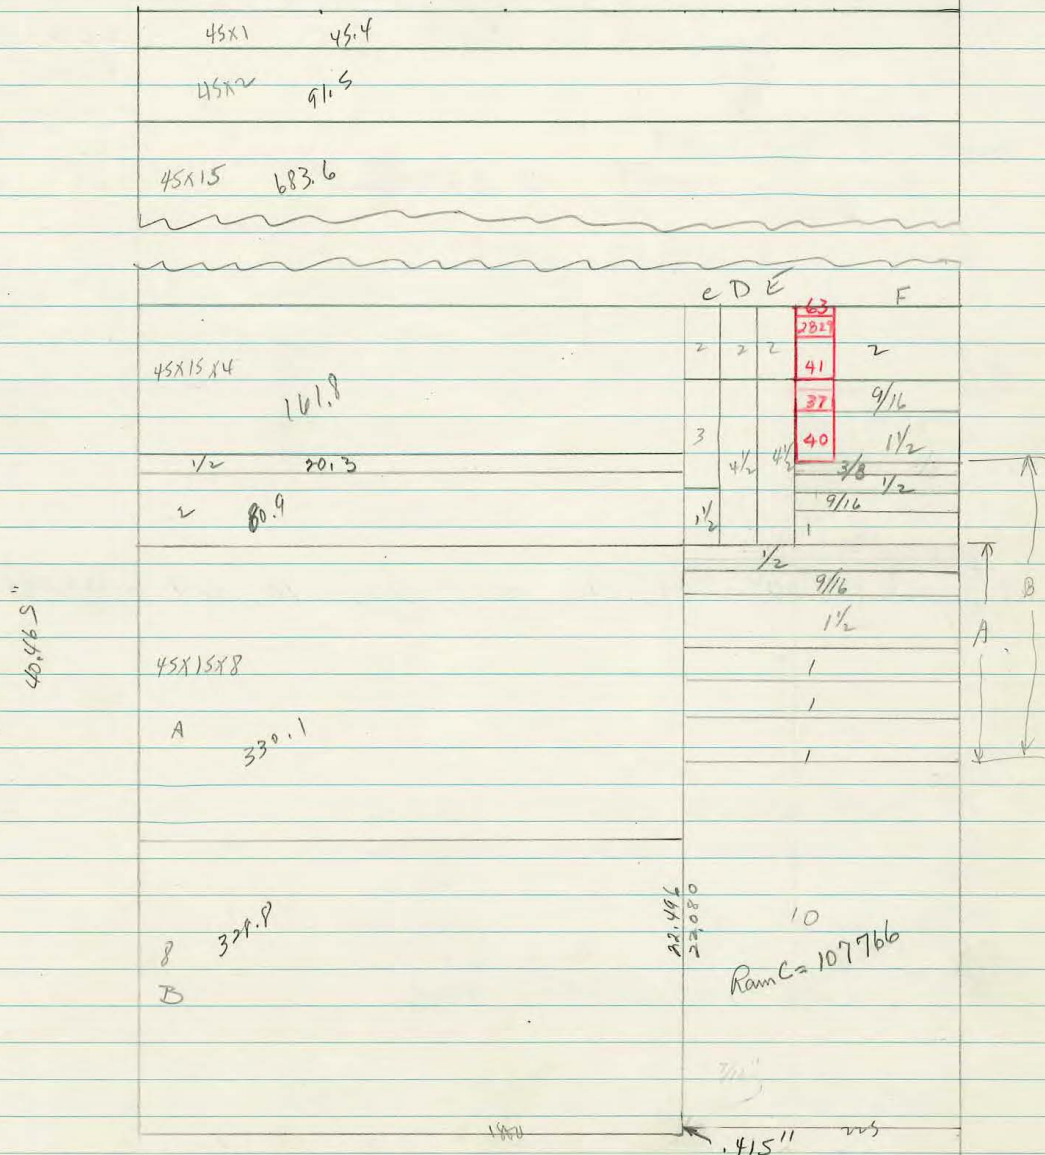 45x1 45.4
45x2 91.5
45x15 683.6
C D E F
63
2829
2 2 2 41 2
45x15x4
161.8
37 9/16
3 4½ 4½ 40 1½
1/2 20.3
3/8
1/2
2 80.9
9/16
1½ 1
1/2
9/16
B
1½
A
40.465"
45x15x8
1
1
A
330.1
1
22.496
22.080
10
8
Ram C = 107766
B
7/16"
1800
.415" 225